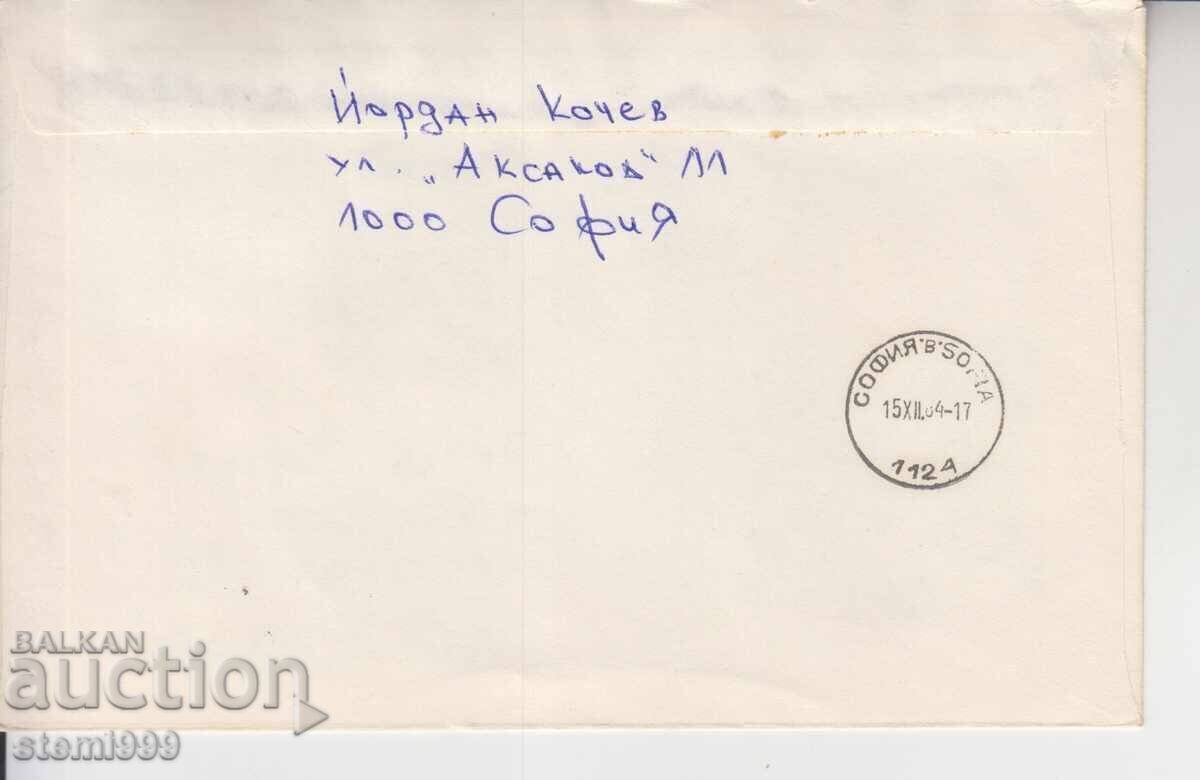 Йордан Кочев
ул. „Аксаков“ 11
1000 София
СОФИЯ·В·SOFIA
15XII.84-17
1124
BALKAN
auction
stemi999